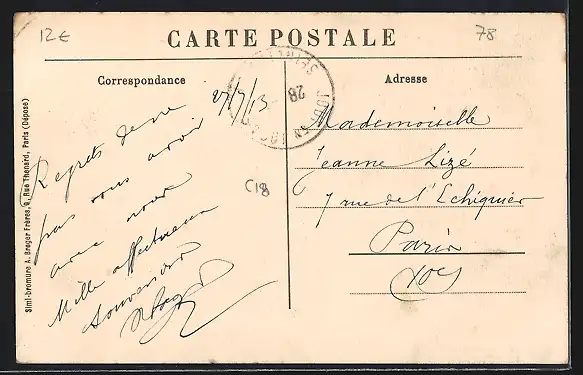 12€
78
CARTE POSTALE
Correspondance
Adresse
27/7/13
28
Regrets de ne
pas vous avoir
avec nous
Mille affectueux
souvenirs
C18
Mademoiselle
Jeanne Lizé
7 rue de l'Echiquier
Paris
Simi-bromure A. Breger Frères, 9, Rue Thénard, Paris (Déposé)